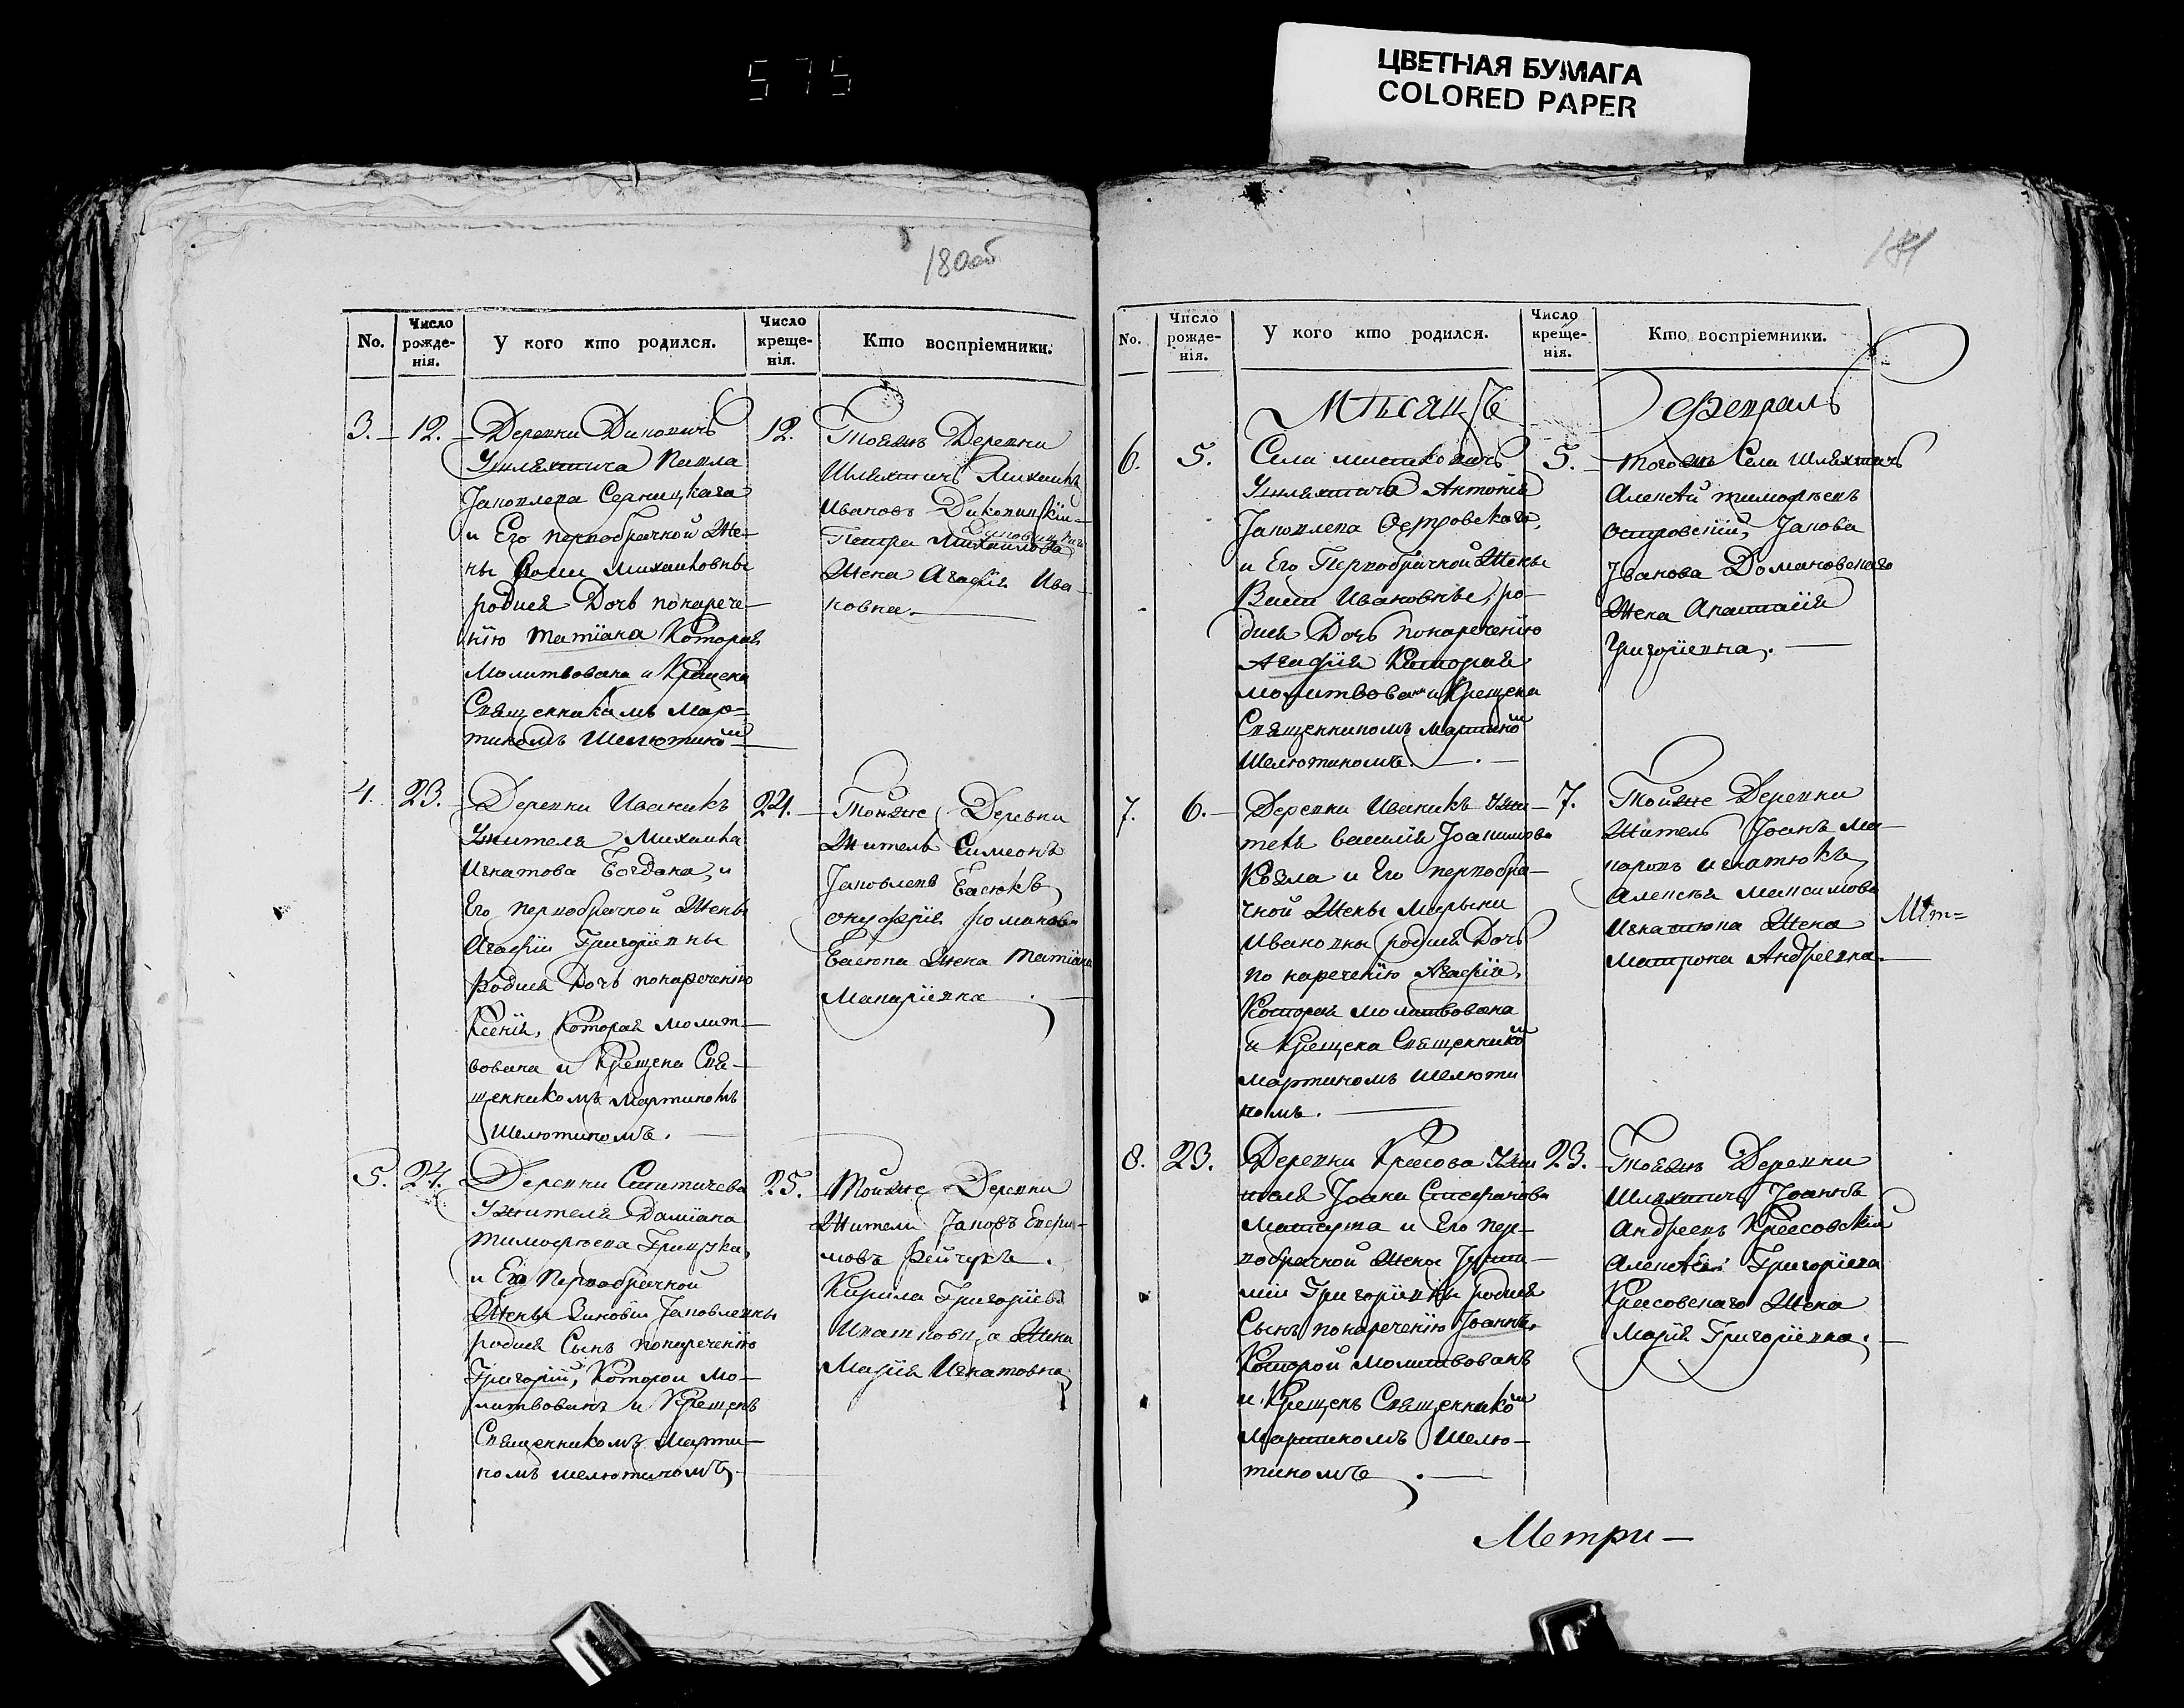 575
ЦВЕТНАЯ БУМАГА
COLORED PAPER
180об
No.
Число рожде-нія.
У кого кто родился.
Число креще-нія.
Кто воспріемники.
3.
12.
Деревни Диковичъ
Ушляхтича Павла
Јаковлева Серницкага
и Его первобрачной Же-
ны Михаиловны
родися Дочь понарече-
нію Татіана Которая
Молитвована и Крещена
Священникомъ Мар-
тиномъ Шелютином
12.
Тояжъ Деревни
Шляхтичъ Михаилъ
Ивановъ Диковицкій
Петра Михаилова
Жена Агафія Ива-
новна.
4.
23.
Деревни Иваникъ
Ужителя Михаила
Игнатова Богдана, и
Его первобрачной Жены
Агафіи Григоріевны
Родися Дочь понареченію
Ксенія, Которая молит-
вована и Крещена Свя-
щенникомъ Мартиномъ
Шелютиномъ.
24.
Тойже Деревни
Житель Симеонъ
Јаковлевъ Басюкъ
Онуфрія Романова
Басюка Жена Татіана
Макаріевна
5.
24.
Деревни Ситичева
Ужителя Даміана
Тимофѣева Грицука,
и Его Первобрачной
Жены Зиновіи Јаковлевны
родися Сынъ понареченію
Григорій, Которой Мо-
литвованъ и Крещенъ
Священникомъ Марти-
номъ Шелютиномъ.
25.
Тойже Деревни
Жители Јаковъ
мовъ Фейчукъ.
Кирила Григоріева
Жена
Марія Игнатовна
181
No.
Число рожде-нія.
У кого кто родился.
Число креще-нія.
Кто воспріемники.
Мѣсяцъ
Февраль
6.
5.
Села Мистковичъ
Ушляхтича Антонія
Јаковлева Островскаго,
и Его Первобрачной Жены
Васи Ивановнье, ро-
дися Дочь понареченію
Агафія Которая
молитвована и Крещена
Священникомъ Мартином
Шелютиномъ.
5.
Тогожъ Села Шляхтичъ
Алексѣй Тимофѣевъ
Островскій, Јакова
Јванова Домановскаго
Жена Анастасія
Григоріевна.
7.
6.
Деревни Иваникъ Ужи-
теля Василія Јоакимова
Козла и Его первобра-
чной Жены Марыни
Ивановны родися Дочь
по нареченію Агафія,
Которая Молитвована
и Крещена Священником
Мартиномъ Шелюти
номъ.
7.
Тойже Деревни
Житель Јоанъ Ма-
каровъ Игнатюкъ
Алексѣя Максимова
Игнатюка Жена
Матрона Андреевна.
8.
23.
Деревни Крсова Ужи
теля Јоана Стефанова
и Его Пер-
вобрачной Жены
міи Григоріевны родися
Сынъ понареченію Јоаннъ,
Которой Молитвованъ
и Крещенъ Священником
Мартиномъ Шелю-
тиномъ.
23.
Тояжъ Деревни
Шляхтичъ Јоаннъ
Андреевъ
Алексѣя Григоріева
Жена
Марія Григоріевна.
Метри-